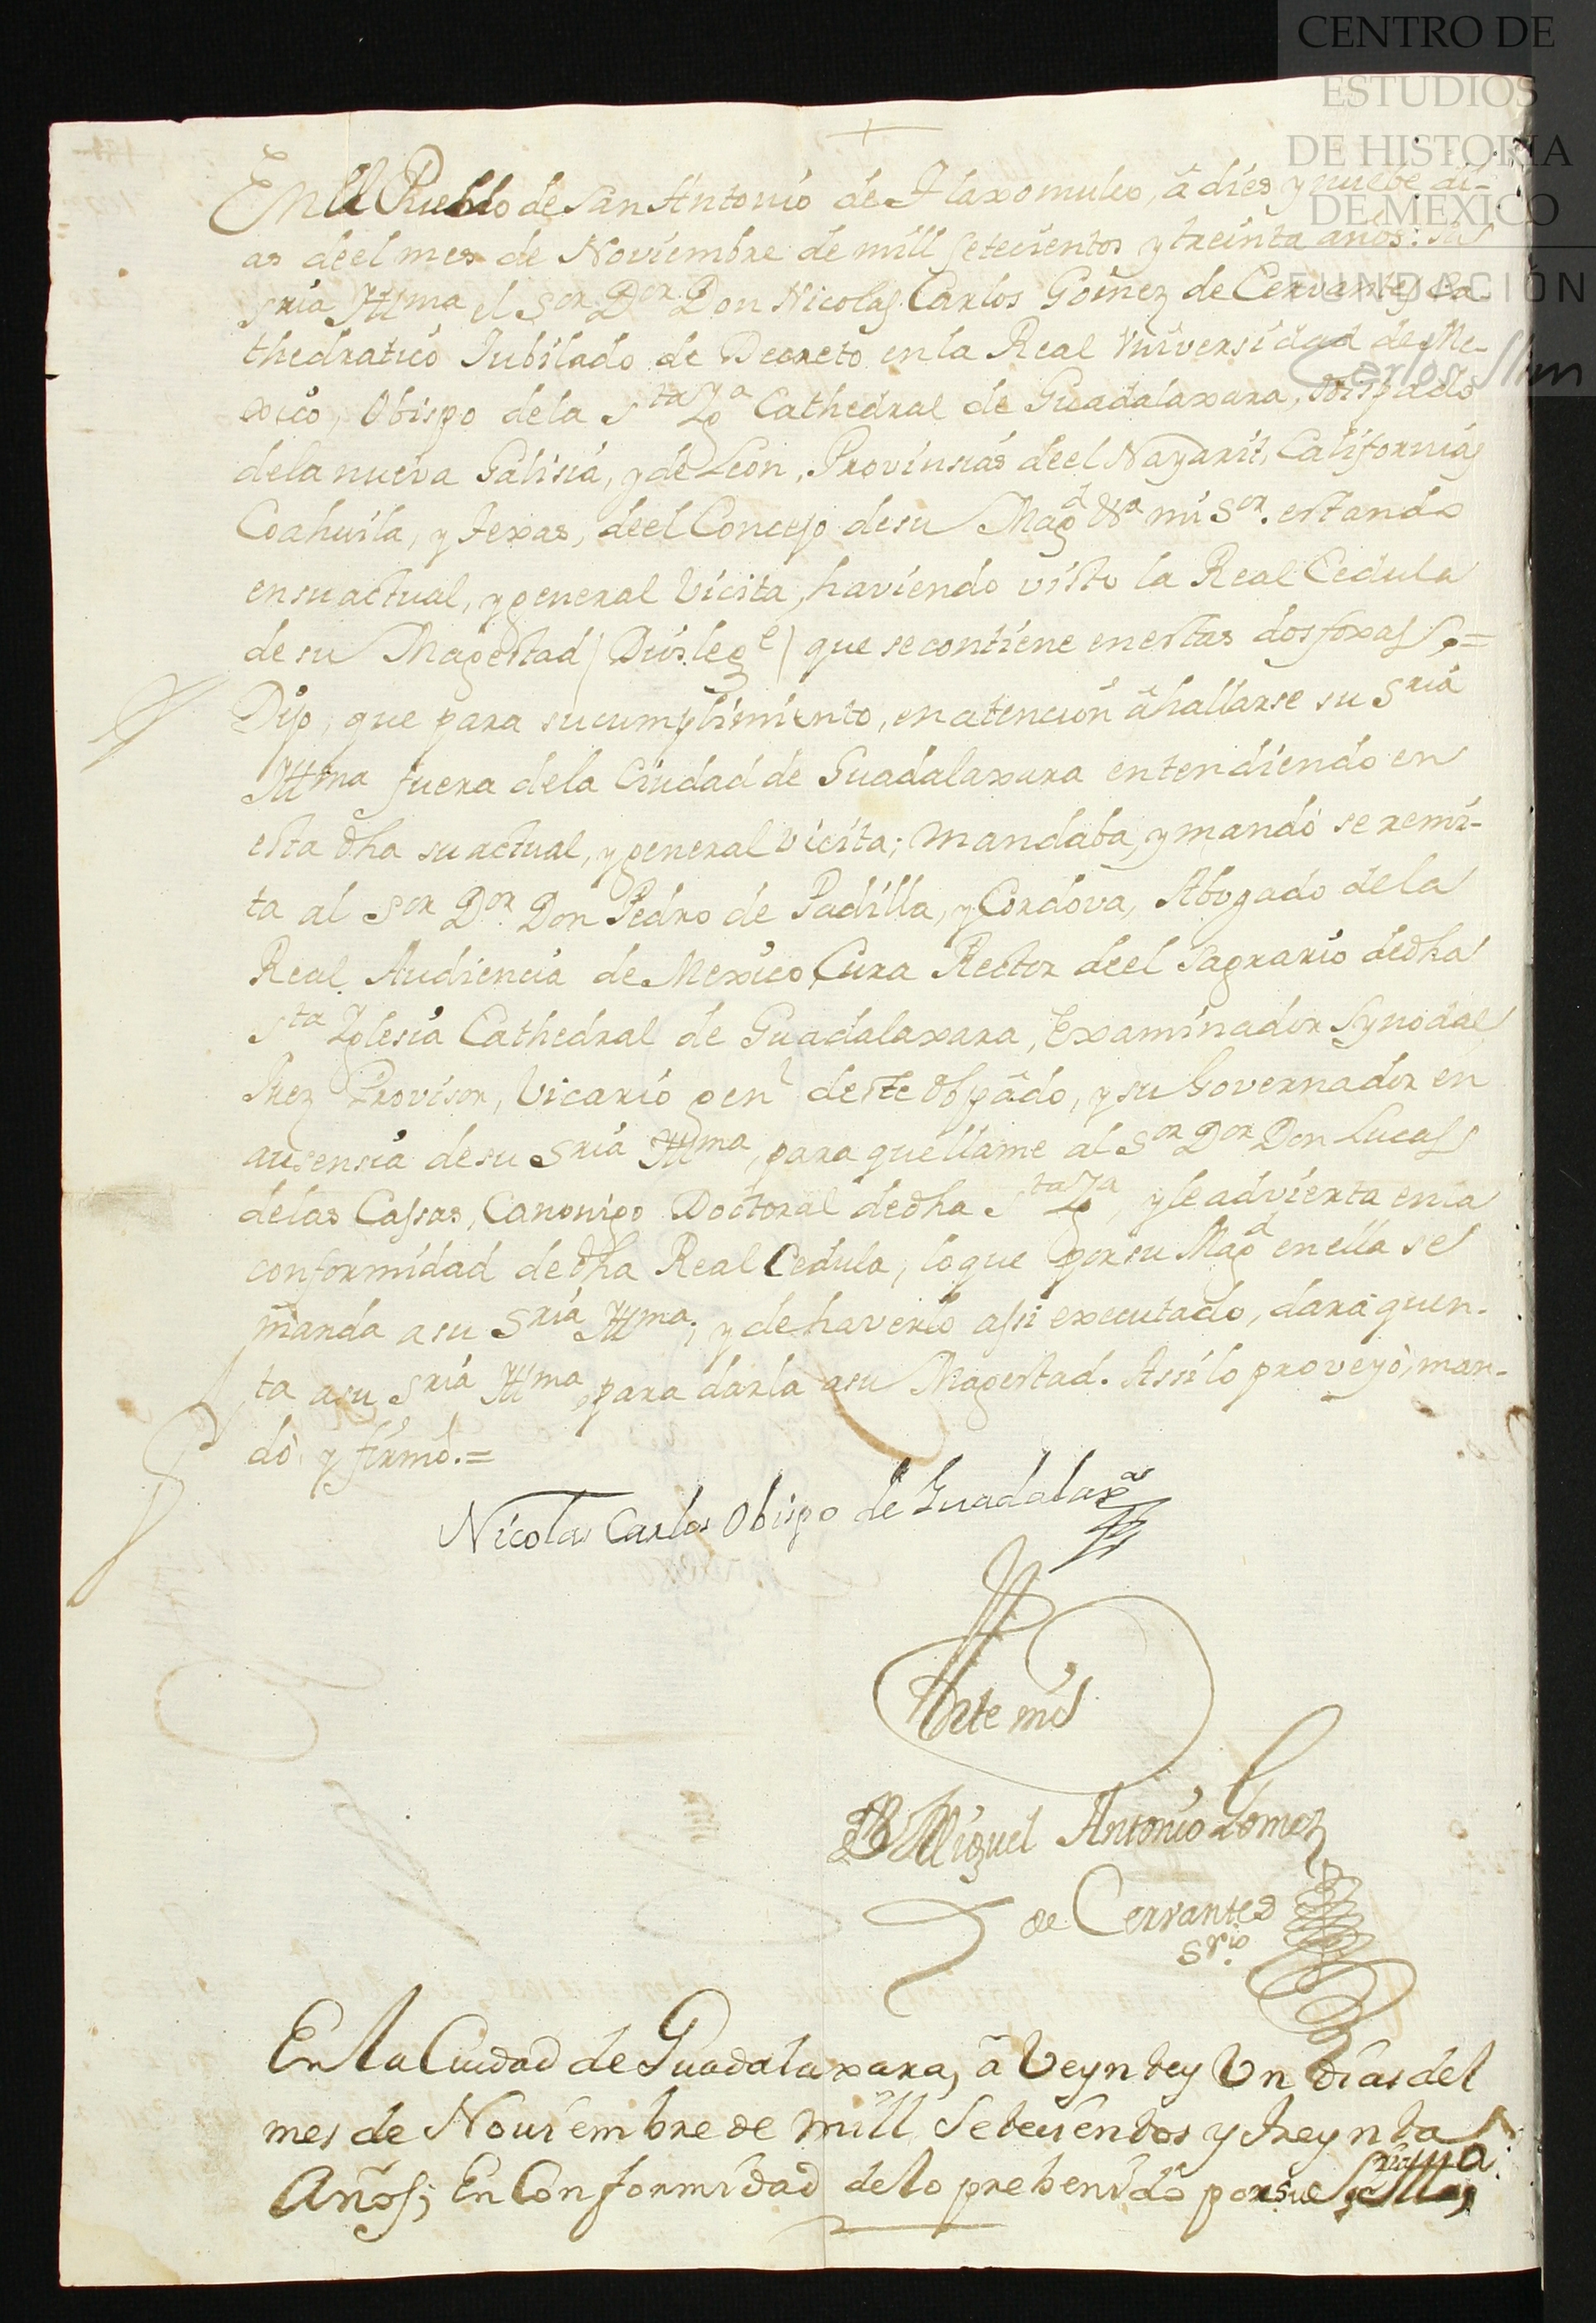 CENTRO DE
ESTUDIOS
DE HISTORIA
DE MEXICO
FUNDACIÓN
Carlos Slim
En el Pueblo de San Antonio de Tlaxomulco, â dies y nuebe di-
as deel mes de Noviembre de mill setecientos y treinta años: su
sria Illma el Sor Dor Don Nicolas Carlos Gómez de Cervantes Ca-
thedratico Jubilado de Decreto en la Real Universidad de Me-
xico, Obispo dela Sta Iga Cathedral de Guadalaxara, Obispado
dela nueva Galisia, y de Leon, Provinsias deel Nayarit, Californias
Coahuila, y texas, deel Concejo desu Magd Vsa mi Sor. estando
en su actual, y general Vicita, haviendo visto la Real Cedula
de su Magestad (Dios lege) que se contiene en estas dos foxas
Dijo, que para su cumplimiento, en atencion â hallarse su Sria
Illma fuera dela Ciudad de Guadalaxara entendiendo en
esta dha su actual, y general vicita; mandaba, y mandó se remi-
ta al Sor Dor Don Pedro de Padilla, y Cordova, Abogado dela
Real Audiencia de Mexico, Cura Rector deel Sagrario dedha
Sta Iglesia Cathedral de Guadalaxara, Examinador Synodal
Juez Provisor, Vicario genl deste Obpâdo, y su Governador en
ausensia de su Sria Illma, para que llame al Sor Dor Don Lucas
delas Cassas, Canonigo Doctoral dedha Sta Iga, y le advierta en la
conformidad dedha Real Cedula, lo que por su Magd en ella se
manda a su Sria Illma; y de haverlo assi executado, dará quen-
ta a su Sria Illma, para darla a su Magestad. Assi lo proveyò, man-
dò, y firmò.=
Nicolas Carlos Obispo de Guadalaxa
Ante mi
Br Miguel Antonio Gomez
de Cervantes
Srio.
En la Ciudad de Guadalaxara, â Veynte y Un dias del
mes de Noviembre de mill Setecientos y treynta
Años; En Conformidad delo prebenido por su Sria Illma,